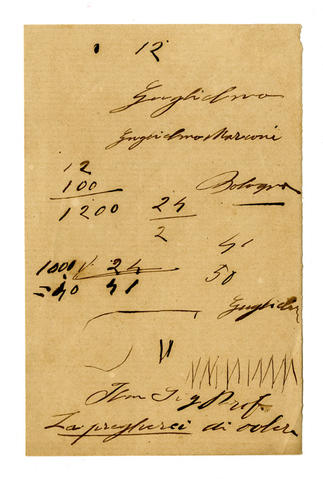 12
Guglielmo
Guglielmo Marconi
12
100
1200
Bologna
24
2
41
50
1000 24
=40 41
Guglielm
Ilm Sig Prof.
La pregherei di voler